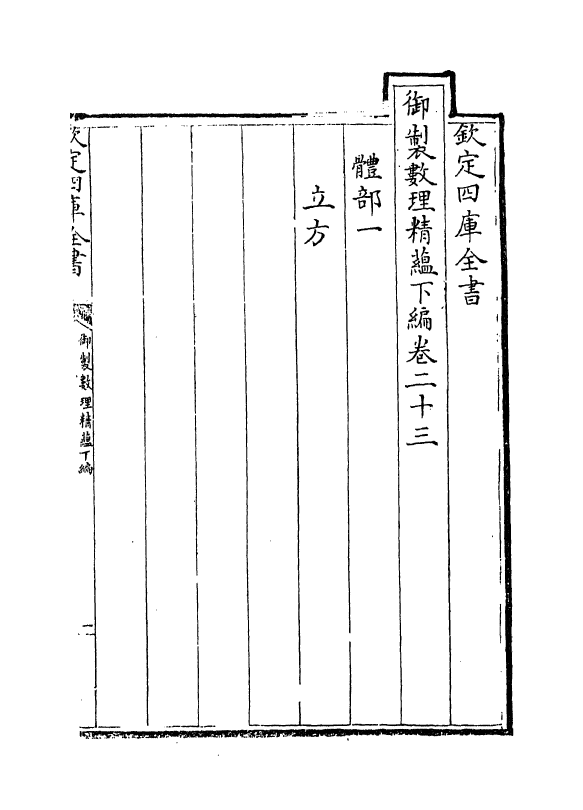 欽定四庫全書
御製數理精藴下編卷二十三
體部一
立方
欽定四庫全書
御製數理精藴下編